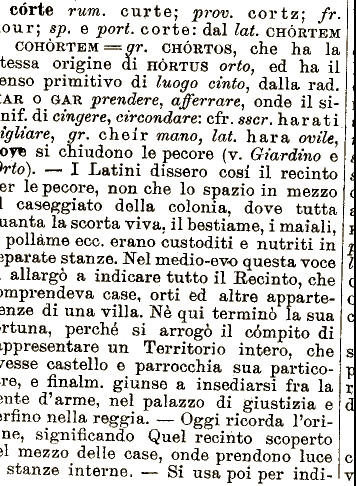 córte rum. curte; prov. cortz; fr.
our; sp. e port. corte: dal lat. CHÒRTEM
COHÒRTEM = gr. CHÓRTOS, che ha la
tessa origine di HÒRTUS orto, ed ha il
enso primitivo di luogo cinto, dalla rad.
AR o GAR prendere, afferrare, onde il si-
nif. di cingere, circondare: cfr. sscr. harati
igliare, gr. cheir mano, lat. hara ovile,
ove si chiudono le pecore (v. Giardino e
Orto). — I Latini dissero così il recinto
er le pecore, non che lo spazio in mezzo
l caseggiato della colonia, dove tutta
uanta la scorta viva, il bestiame, i maiali,
pollame ecc. erano custoditi e nutriti in
eparate stanze. Nel medio-evo questa voce
allargò a indicare tutto il Recinto, che
omprendeva case, orti ed altre apparte-
enze di una villa. Nè qui terminò la sua
ortuna, perché si arrogò il cómpito di
appresentare un Territorio intero, che
vesse castello e parrocchia sua partico-
re, e finalm. giunse a insediarsi fra la
ente d'arme, nel palazzo di giustizia e
erfino nella reggia. — Oggi ricorda l'ori-
ne, significando Quel recinto scoperto
el mezzo delle case, onde prendono luce
stanze interne. — Si usa poi per indi-